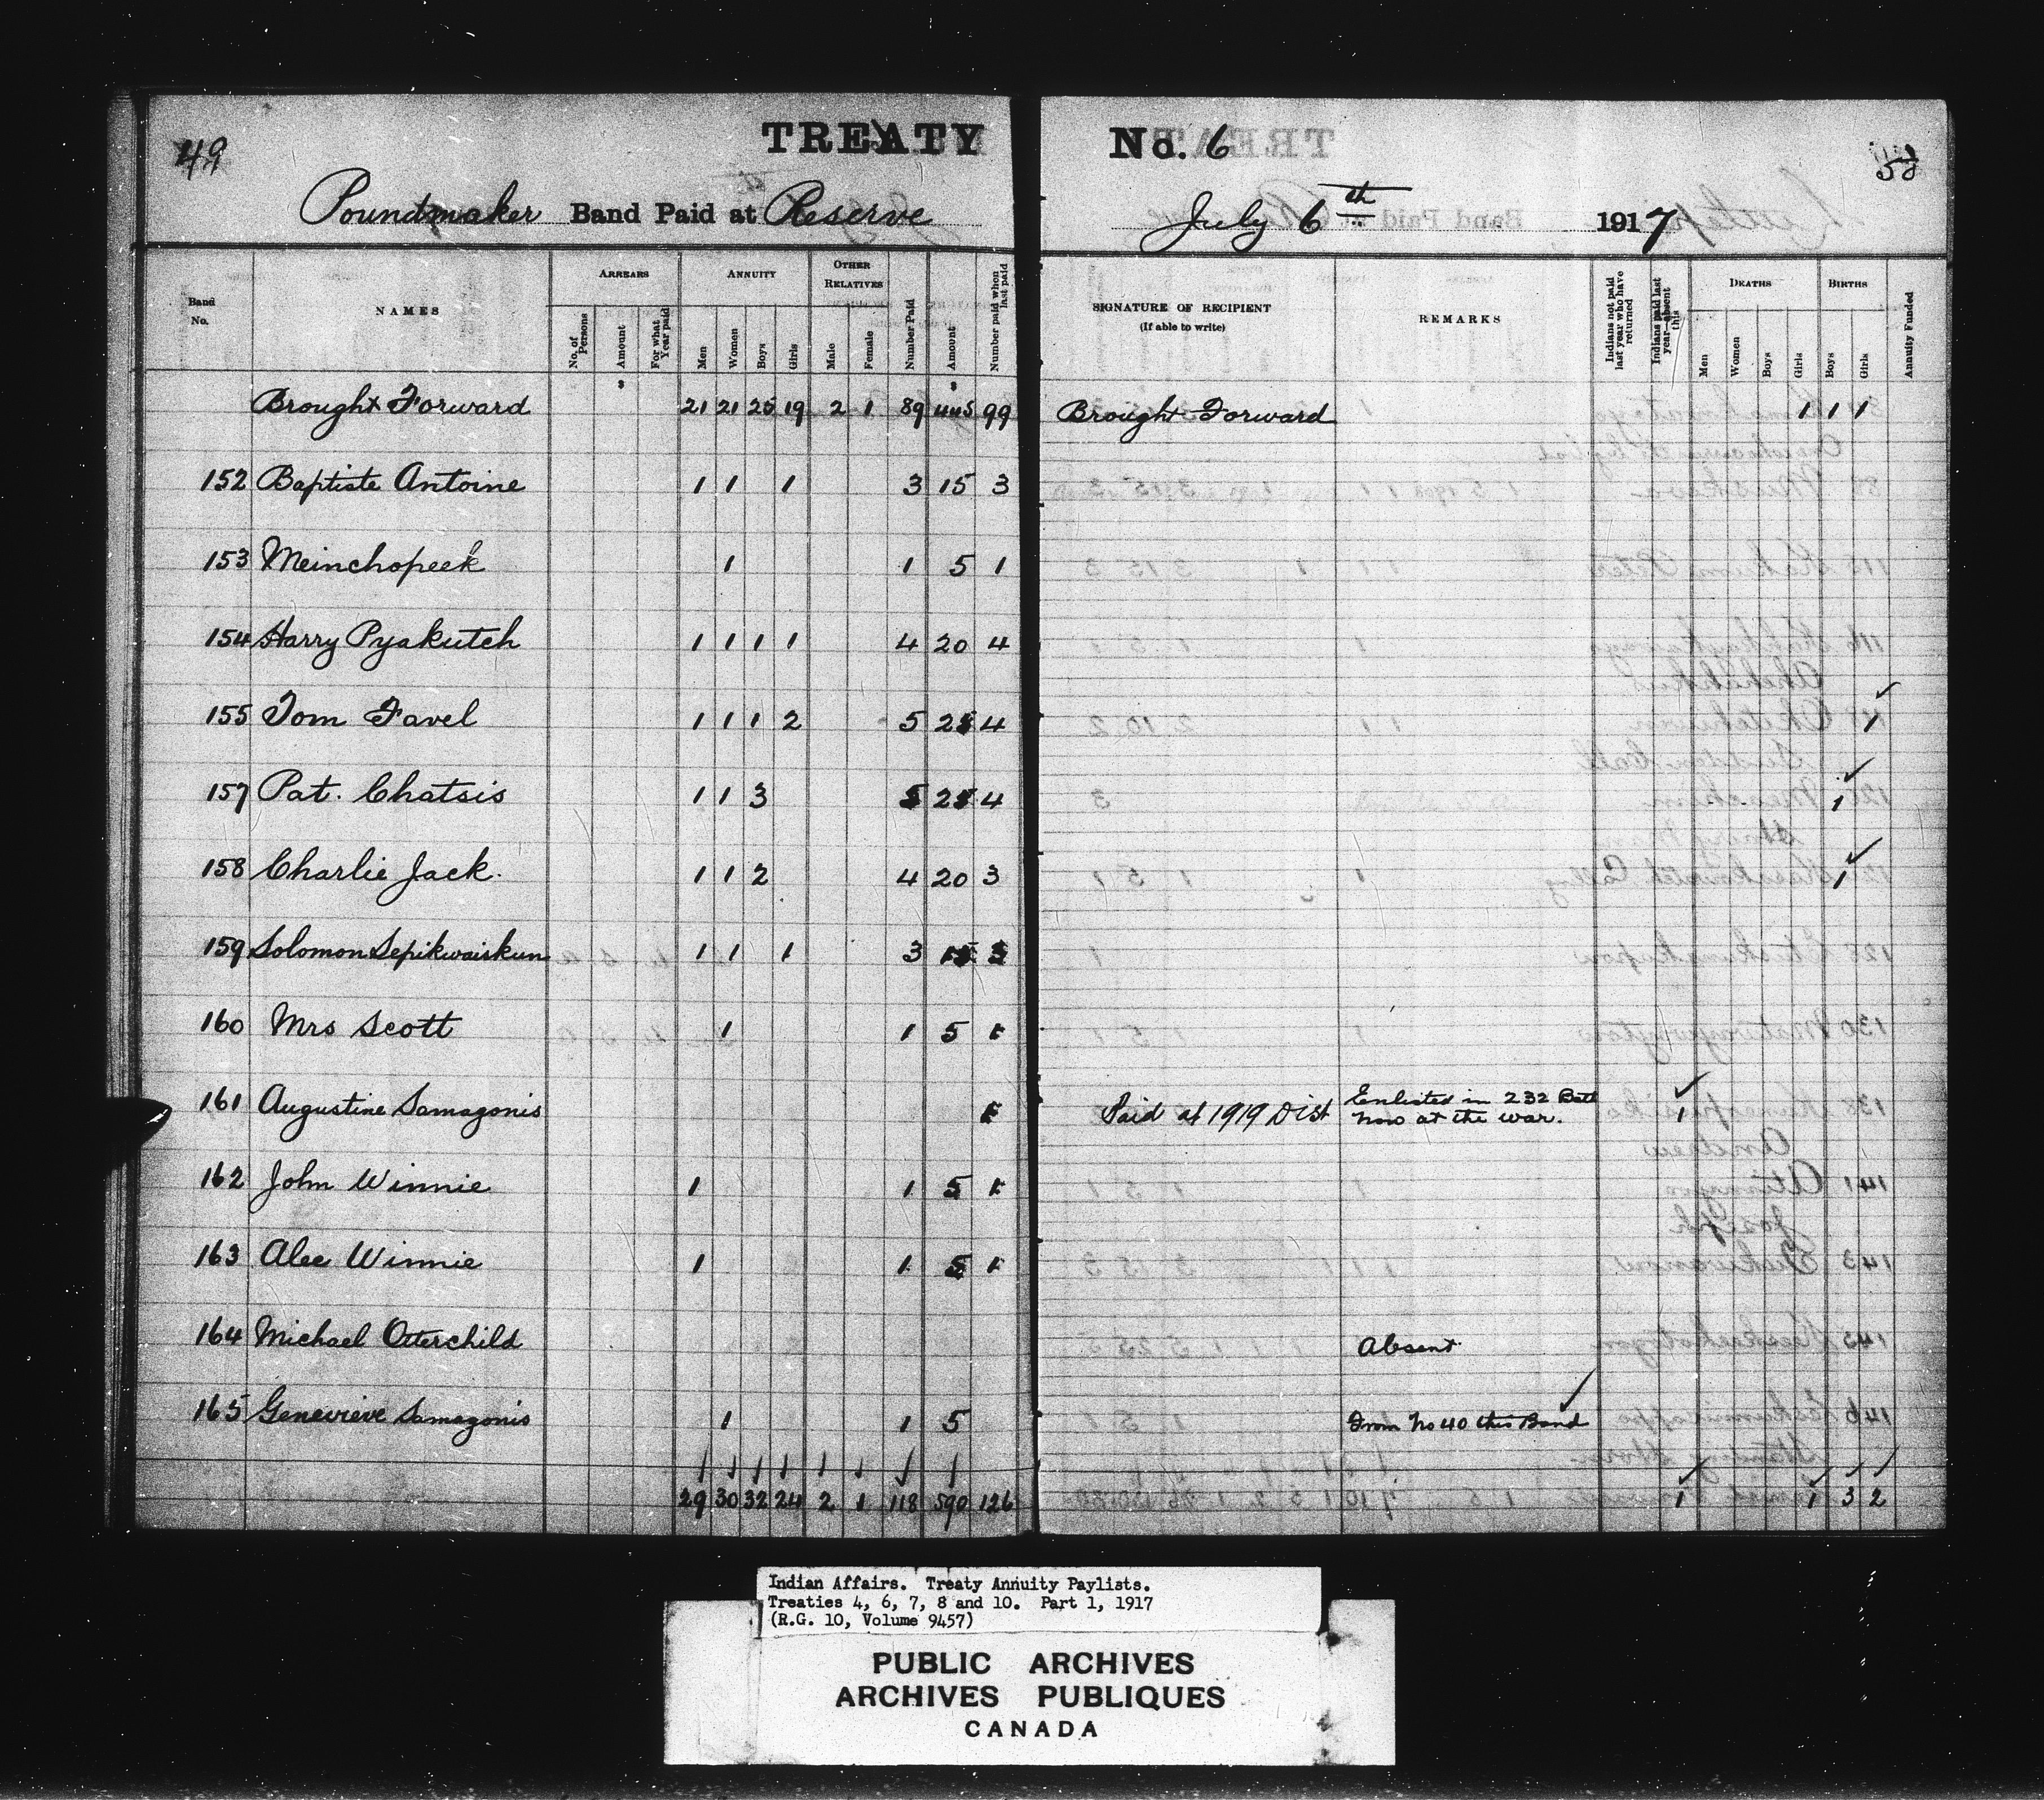 49
TREATY No. 6
Poundmaker Band Paid at Reserve July 6th 1917
Band No. NAMES ARREARS ANNUITY OTHER RELATIVES Number Paid Amount Number paid when last paid
No. of Persons Amount For what Year paid Men Women Boys Girls Male Female
SIGNATURE OF RECIPIENT (If able to write) REMARKS Indians not paid last year who have returned Indians paid last year—absent this DEATHS BIRTHS Annuity Funded
Men Women Boys Girls Boys Girls
Brought Forward 21 21 25 19 2 1 89 445 99 Brought Forward 1 1 1
152 Baptiste Antoine 1 1 1 3 15 3
153 Meinchopeek 1 1 5 1
154 Harry Pyakutch 1 1 1 1 4 20 4
155 Tom Favel 1 1 1 2 5 25 4 1
157 Pat. Chatsis 1 1 3 5 25 4 1
158 Charlie Jack. 1 1 2 4 20 3 1
159 Solomon Sepikwaiskun 1 1 1 3 15 3
160 Mrs Scott 1 1 5 1
161 Augustine Samagonis 1 Paid at 1919 Dist Enlisted in 232 Batt now at the war. 1
162 John Winnie 1 1 5 1
163 Alec Winnie 1 1 5 1
164 Michael Otterchild Absent
165 Genevieve Samagonis 1 1 5 From No 40 this Band
29 30 32 24 2 1 118 590 126 1 1 3 2
Indian Affairs. Treaty Annuity Paylists.
Treaties 4, 6, 7, 8 and 10. Part 1, 1917
(R.G. 10, Volume 9457)
PUBLIC ARCHIVES
ARCHIVES PUBLIQUES
CANADA